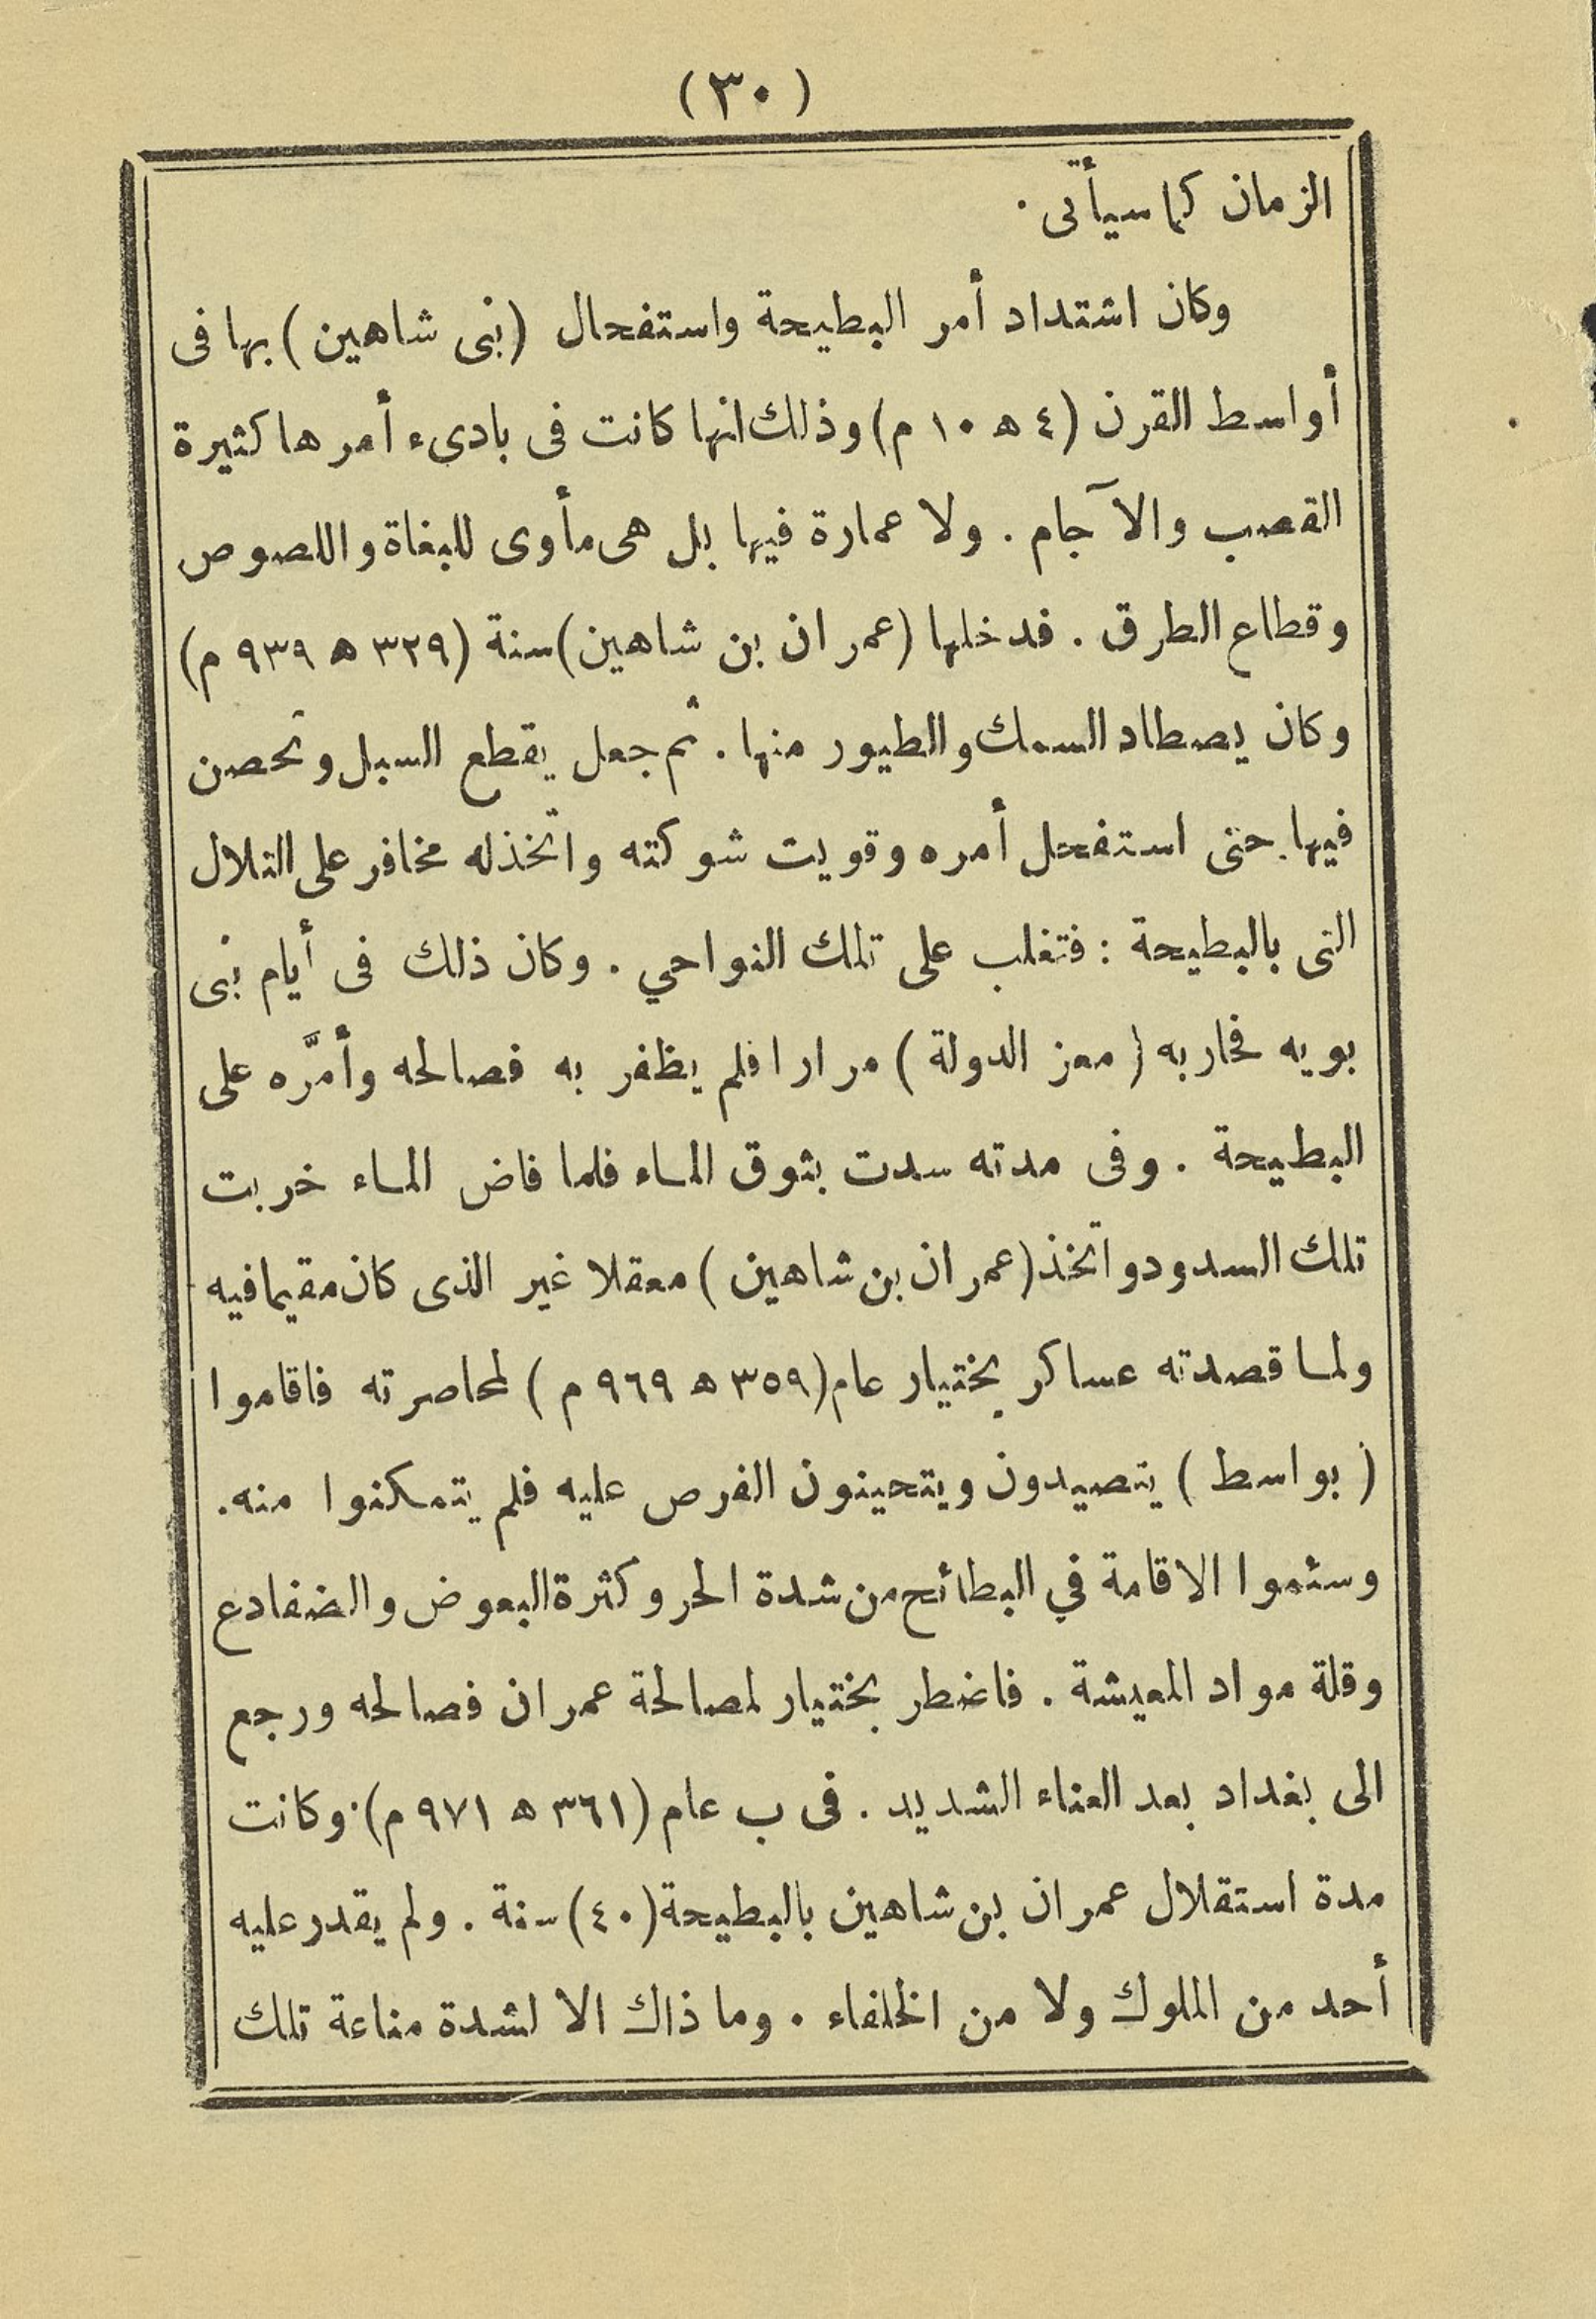 (٣٠)
الزمان كما سيأتى.
وكان اشتداد أمر البطيحة واستفحال (بنى شاهين) بها فى
أواسط القرن (٤ ه ١٠ م) وذلك انها كانت فى بادىء أمرها كثيرة
القصب والآجام. ولا عمارة فيها بل هى مأوى للبغاة واللصوص
وقطاع الطرق. فدخلها (عمران بن شاهين) سنة (٣٢٩ ه ٩٣٩ م)
وكان يصطاد السمك والطيور منها. ثم جعل يقطع السبل وتحصن
فيها حتى استفحل أمره وقويت شوكته واتخذ له مخافر على التلال
التى بالبطيحة : فتغلب على تلك النواحي. وكان ذلك فى أيام بنى
بويه فحاربه (معز الدولة) مرارا فلم يظفر به فصالحه وأمَّره على
البطيحة. وفى مدته سدت بثوق الماء فلما فاض الماء خربت
تلك السدود واتخذ (عمران بن شاهين) معقلا غير الذى كان مقيما فيه
ولما قصدته عساكر بختيار عام (٣٥٩ ه ٩٦٩ م) لمحاصرته فاقاموا
(بواسط) يتصيدون ويتحينون الفرص عليه فلم يتمكنوا منه.
وسئموا الاقامة في البطائح من شدة الحر وكثرة البعوض والضفادع
وقلة مواد المعيشة. فاضطر بختيار لمصالحة عمران فصالحه ورجع
الى بغداد بعد العناء الشديد. فى ب عام (٣٦١ ه ٩٧١ م). وكانت
مدة استقلال عمران بن شاهين بالبطيحة (٤٠) سنة. ولم يقدر عليه
أحد من الملوك ولا من الخلفاء. وما ذاك الا لشدة مناعة تلك